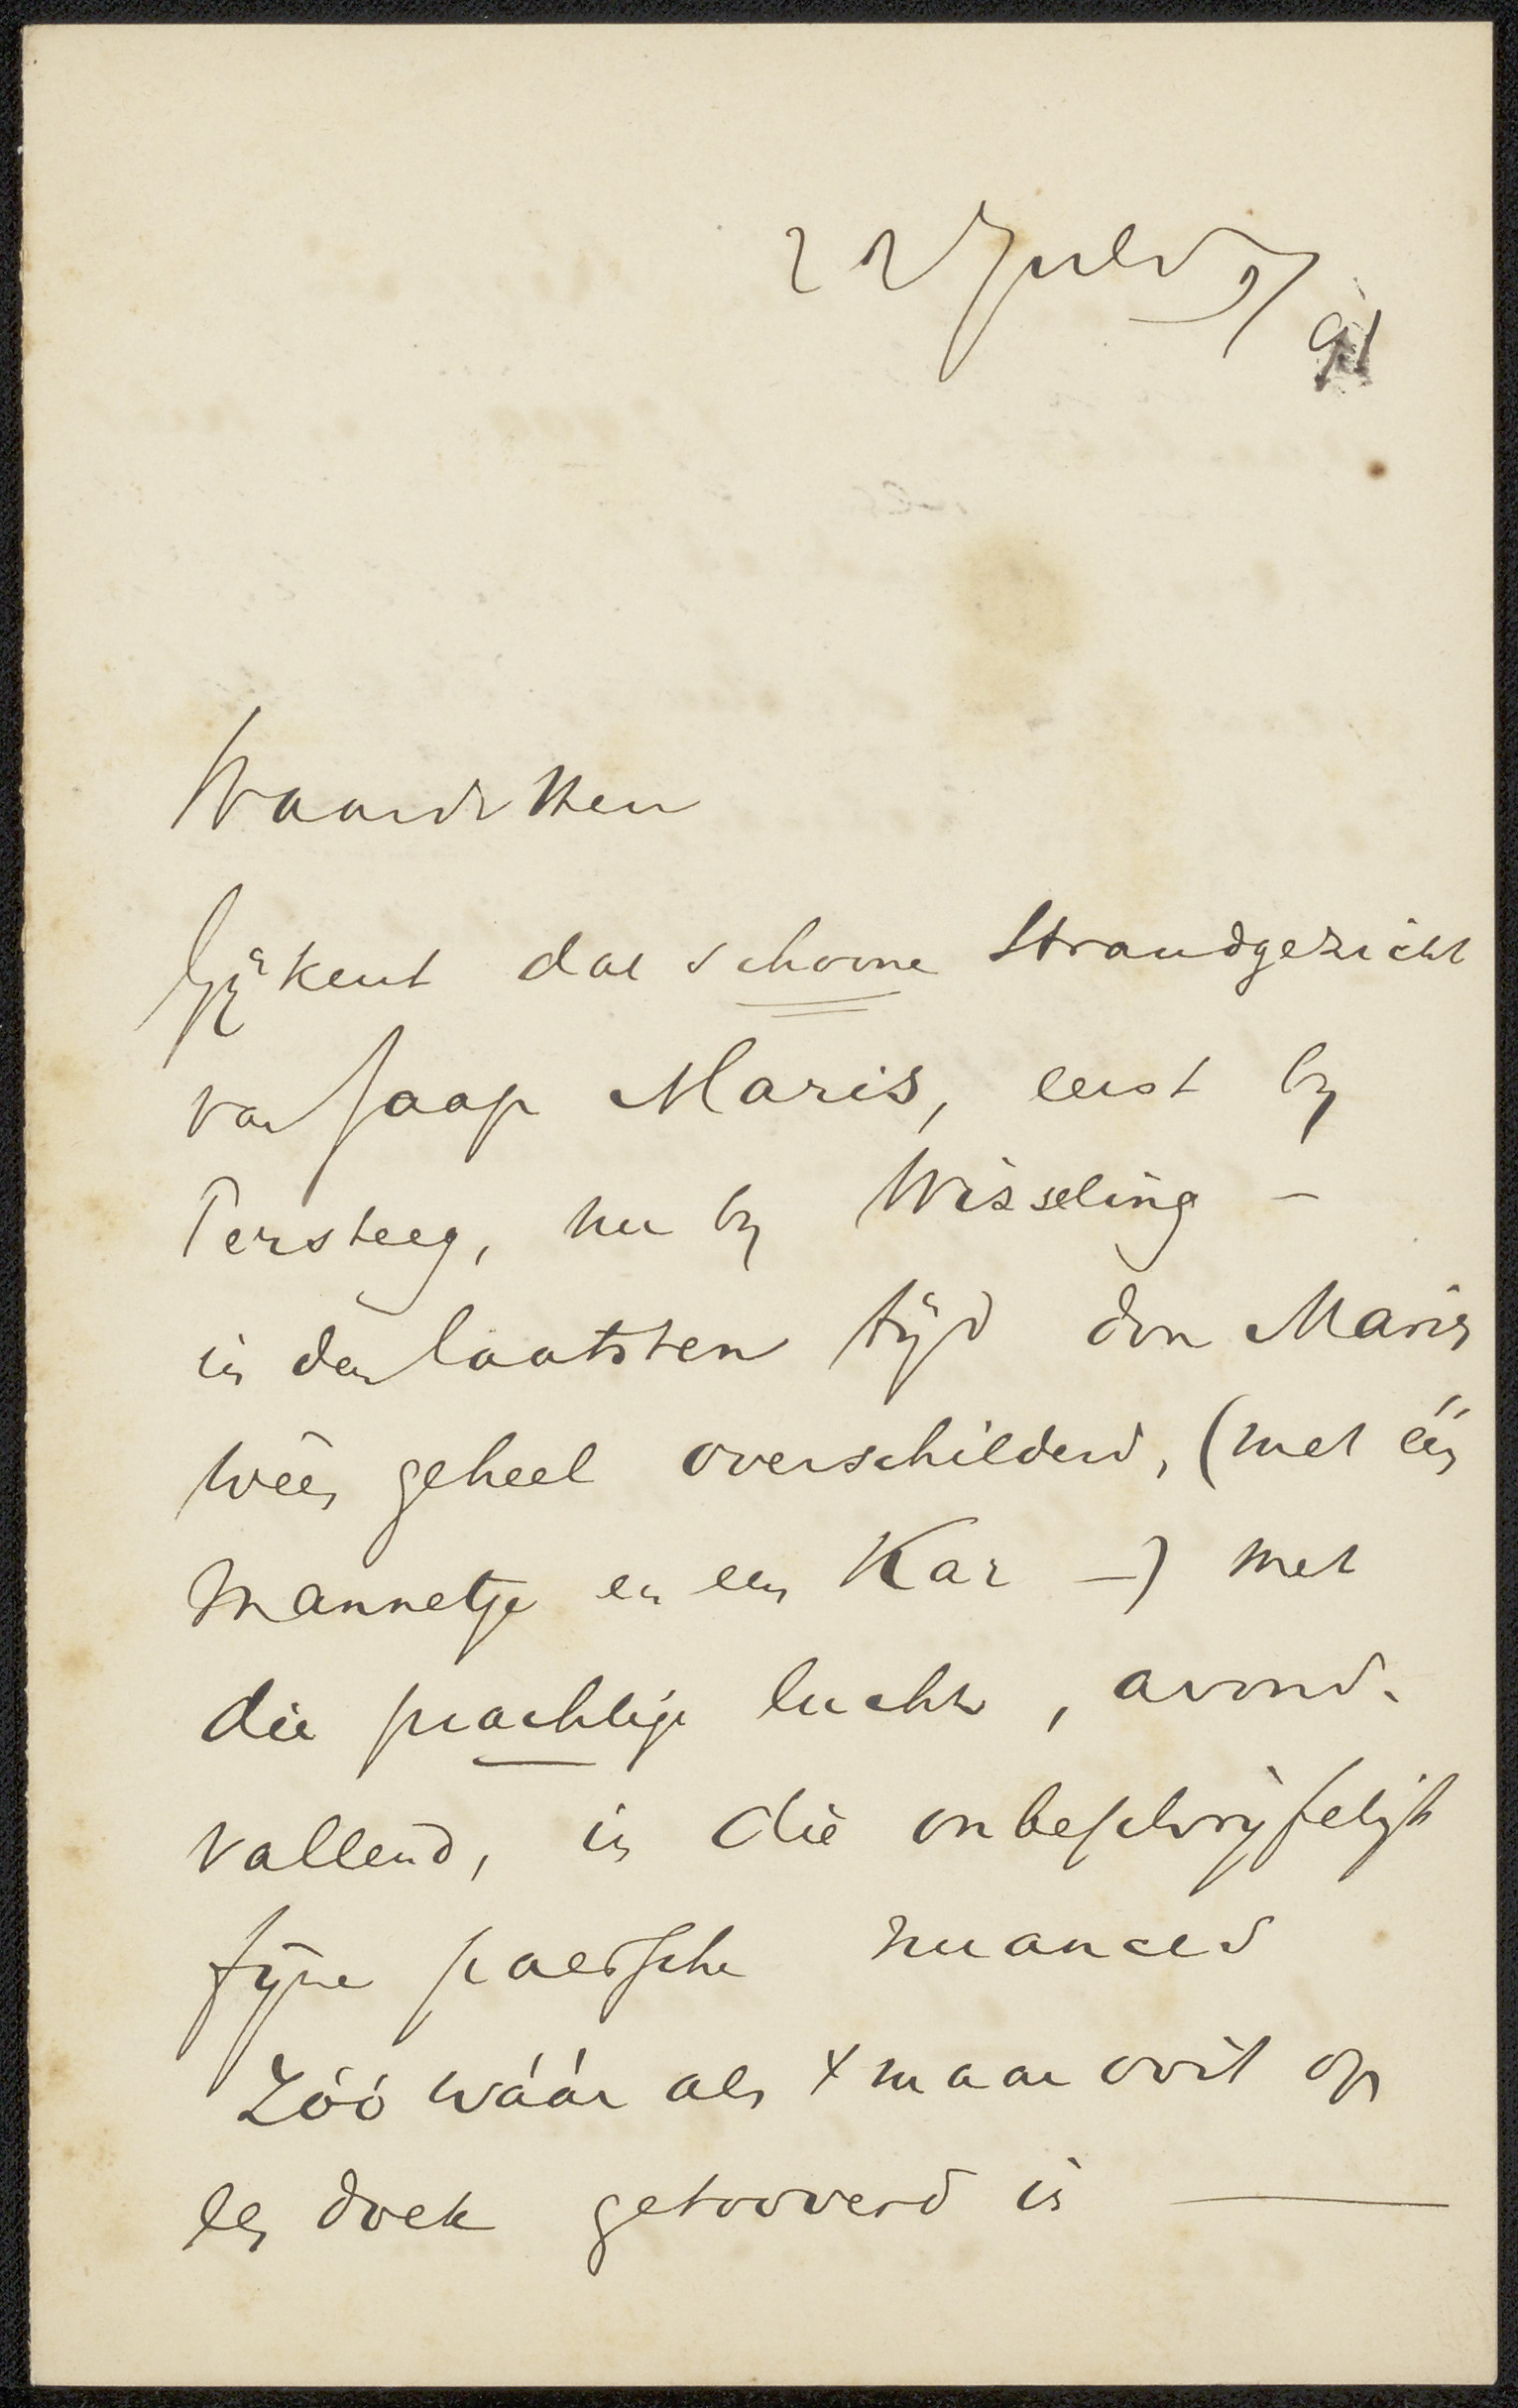 22 July
91
Waarde Heer
Gÿ kent dat schoone Strandgezicht
van Jaap Maris, eerst by
Tersteeg, nu by Wisseling —
in den laatsten tÿd door Maris
wéér geheel overschilderd, (met één
mannetje en een Kar —) met
die prachtige lucht, avond-
vallend, in die onbeschrÿfelÿk
fÿne paersche nuances
zóó wáár als 't maar ooit op
een doek getooverd is —